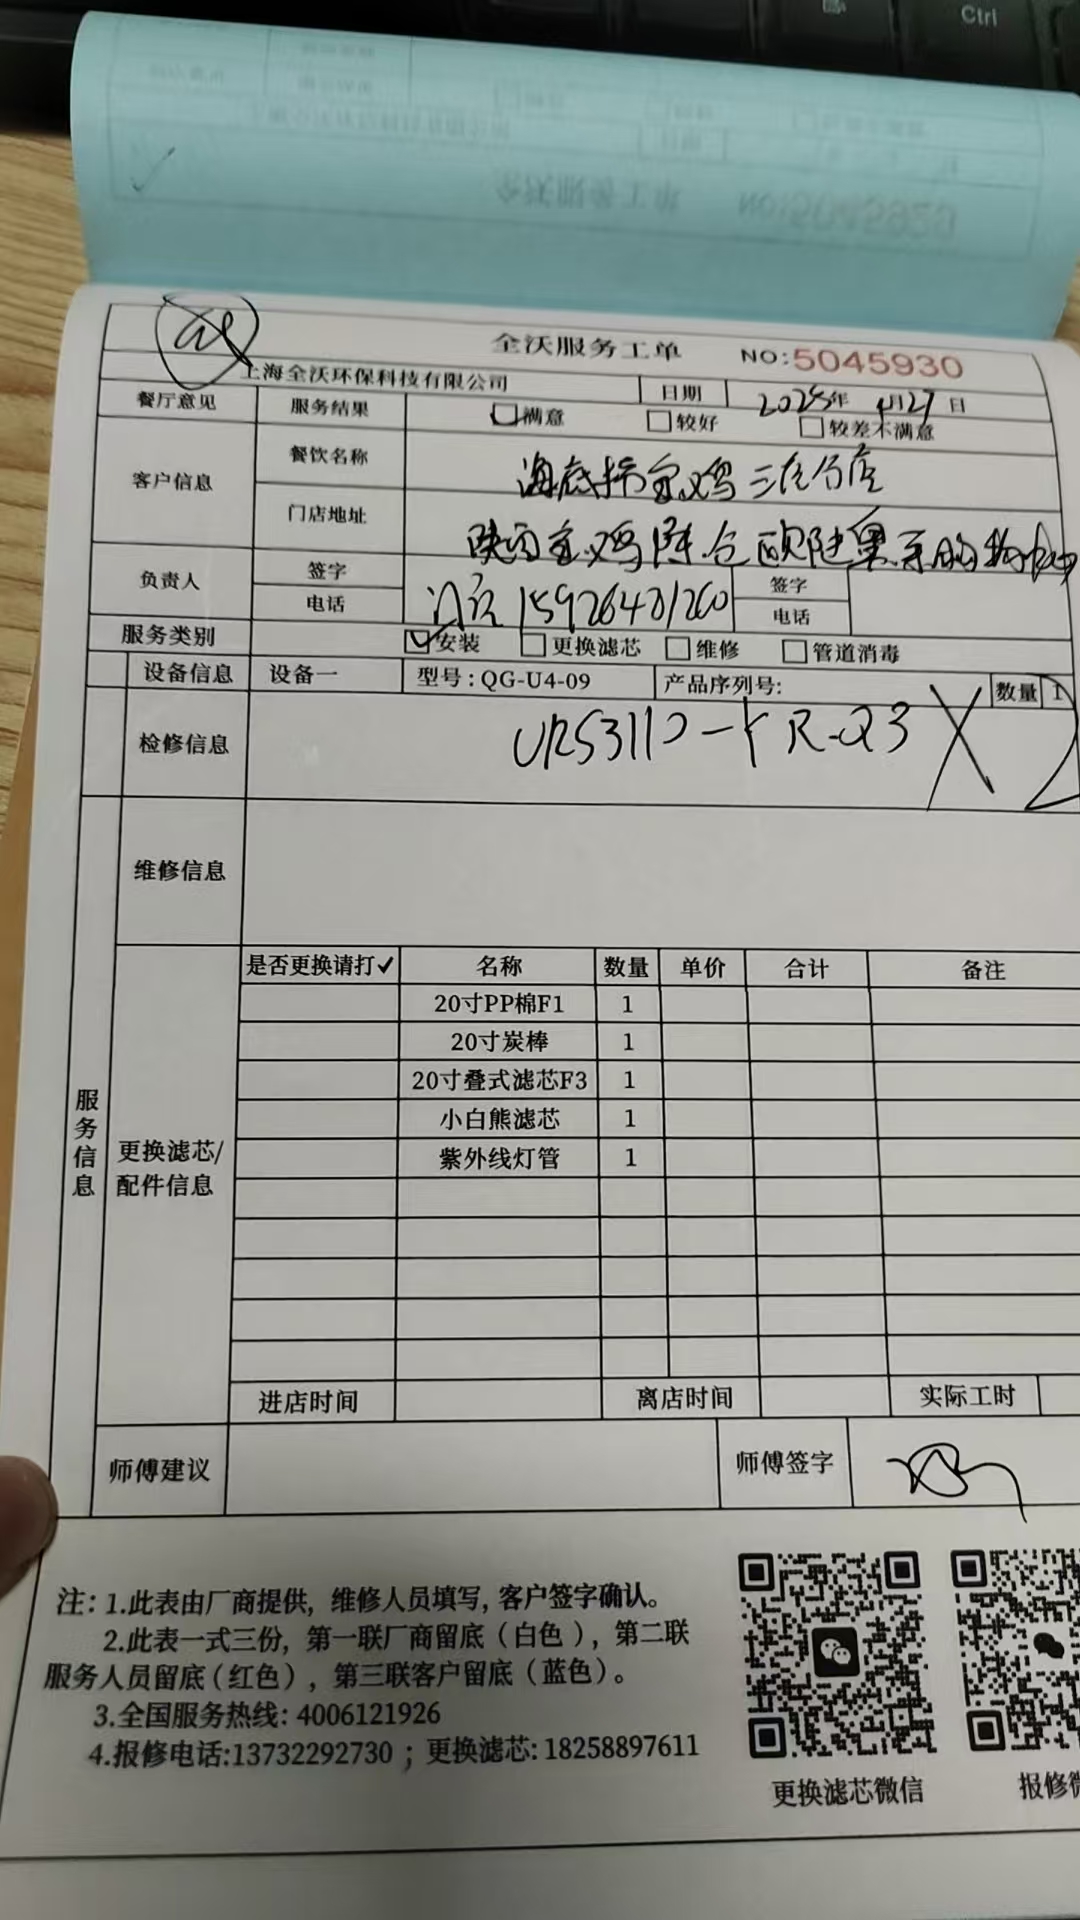 Ctrl
全沃服务工单 NO:5045930
上海全沃环保科技有限公司 日期 2025年 月27日
餐厅意见 服务结果 满意 较好 较差不满意
客户信息 餐饮名称 海底捞宝鸡三店
门店地址 陕西宝鸡陈仓
负责人 签字 签字
电话 15926421260 电话
服务类别 安装 更换滤芯 维修 管道消毒
设备信息 设备一 型号:QG-U4-09 产品序列号: 数量 1
检修信息 R-Q3 X 2
维修信息
服务信息
更换滤芯/配件信息
是否更换请打✓ 名称 数量 单价 合计 备注
20寸PP棉F1 1
20寸炭棒 1
20寸叠式滤芯F3 1
小白熊滤芯 1
紫外线灯管 1
进店时间 离店时间 实际工时
师傅建议 师傅签字
注: 1.此表由厂商提供, 维修人员填写, 客户签字确认。
2.此表一式三份, 第一联厂商留底(白色), 第二联
服务人员留底(红色), 第三联客户留底(蓝色)。
3.全国服务热线: 4006121926
4.报修电话:13732292730 ; 更换滤芯: 18258897611
更换滤芯微信 报修微